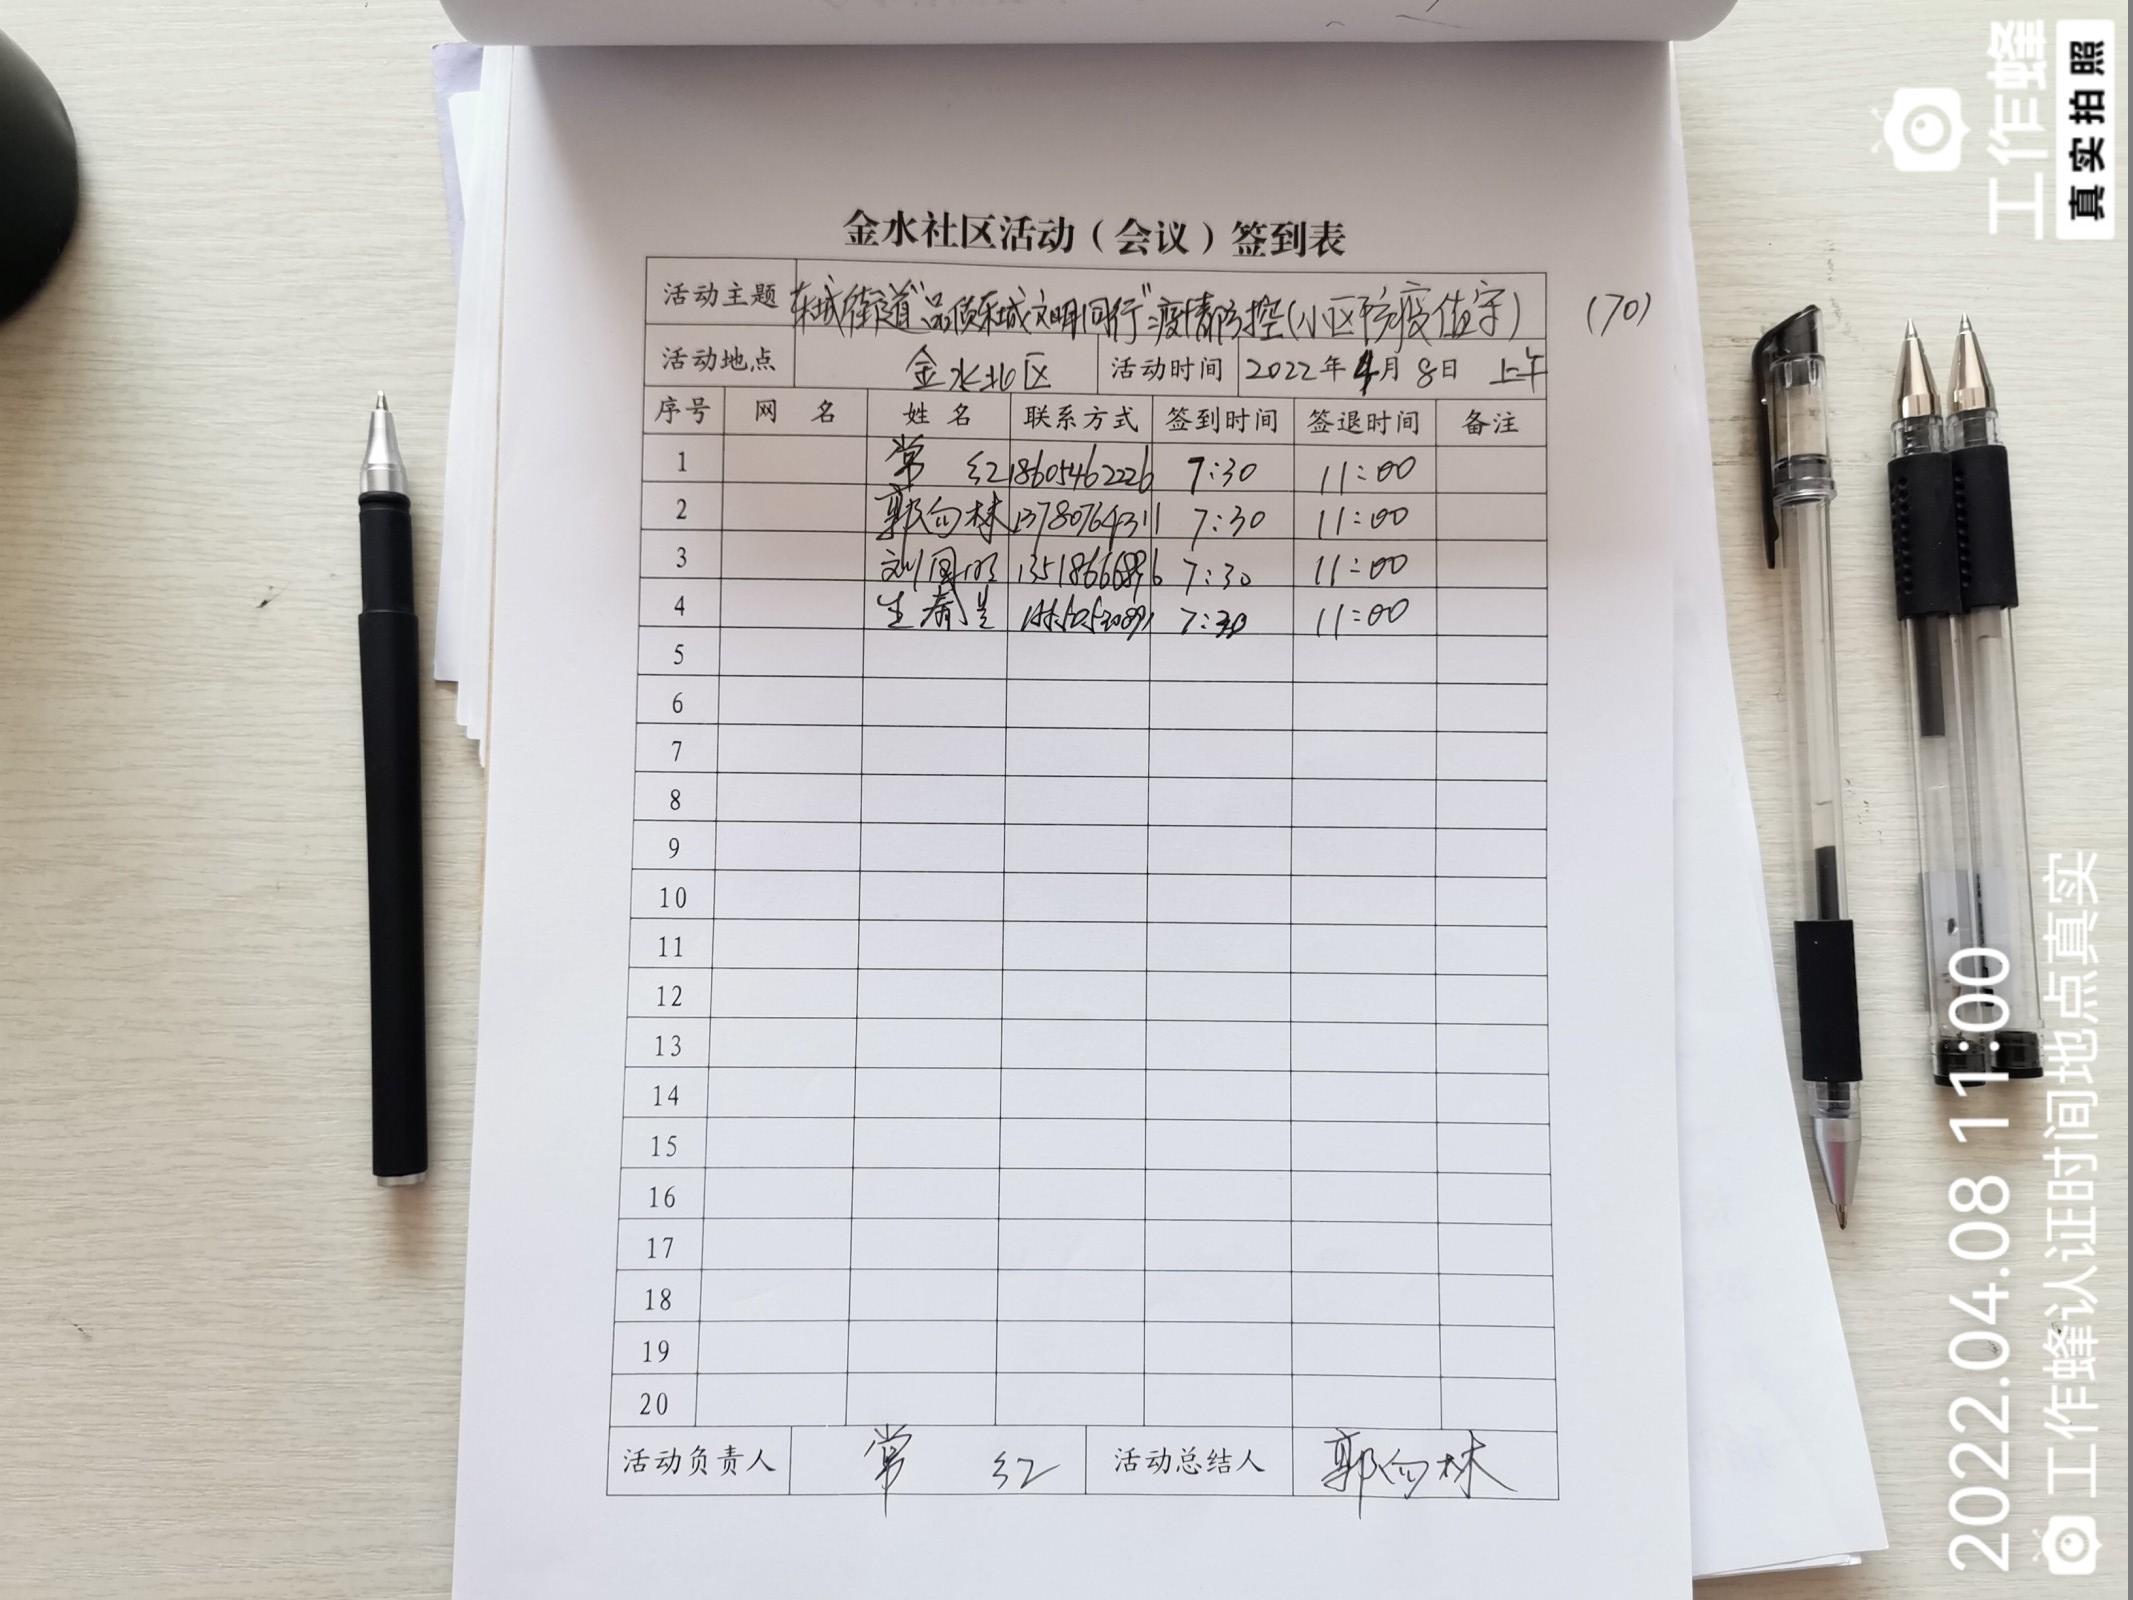 金水社区活动（会议）签到表
活动主题 东城街道"品质东城文明同行"疫情防控(小区防疫值守) (70)
活动地点 金水北区 活动时间 2022年4月8日 上午
序号 网 名 姓 名 联系方式 签到时间 签退时间 备注
1 常 红 18605462226 7:30 11:00
2 郭向林 13780764311 7:30 11:00
3 刘国明 7:30 11:00
4 7:30 11:00
5
6
7
8
9
10
11
12
13
14
15
16
17
18
19
20
活动负责人 常 红 活动总结人 郭向林
工作蜂
真实拍照
2022.04.08 11:00
工作蜂认证时间地点真实